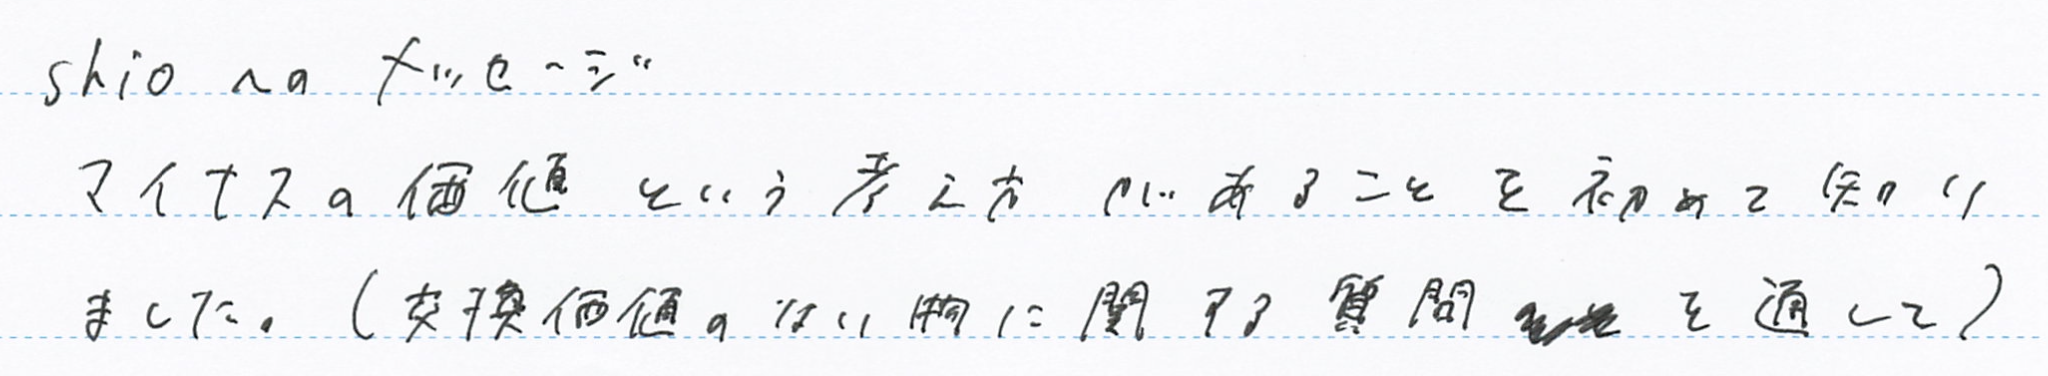 shioへのメッセージ
マイナスの価値という考え方があることを初めて知り
ました。(交換価値のない物に関する質問を通して)